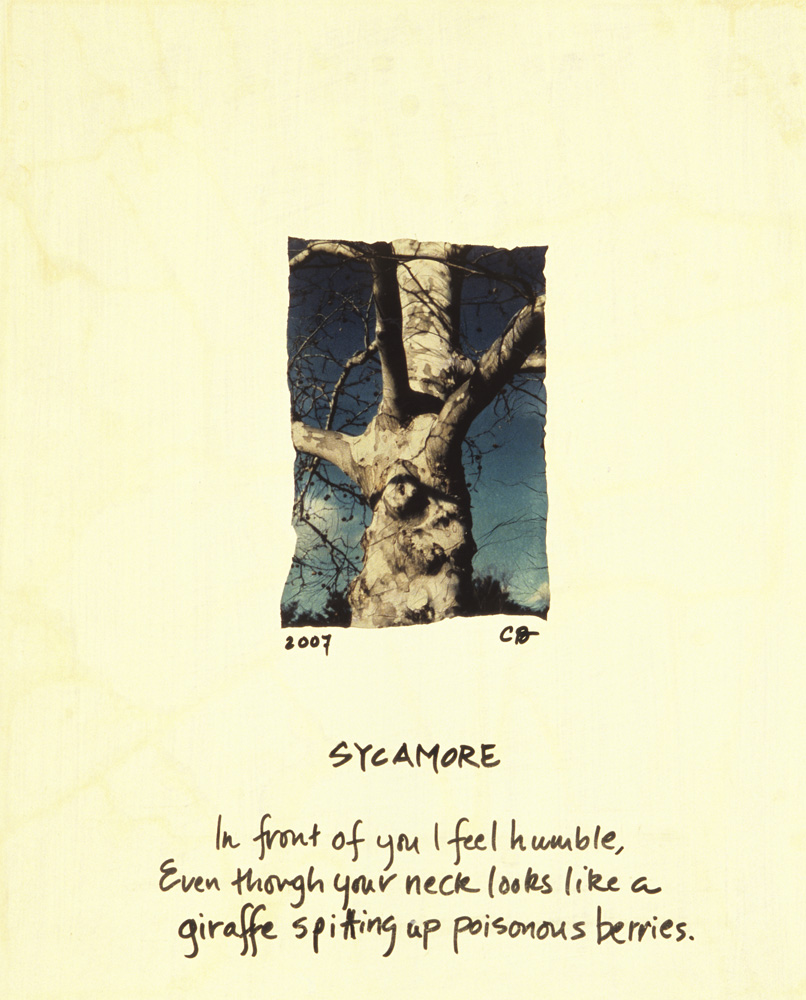 2007 CB
SYCAMORE
In front of you I feel humble,
Even though your neck looks like a
giraffe spitting up poisonous berries.